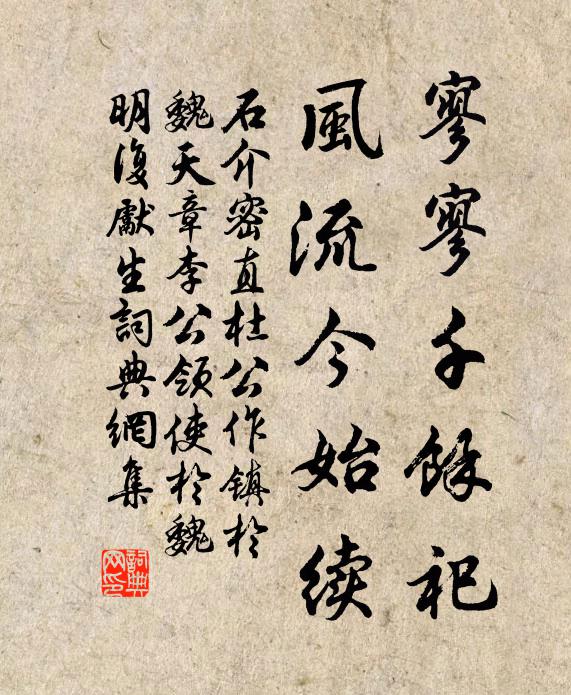 寥寥千餘祀
風流今始續
石介密直杜公作鎮於
魏天章李公領使於魏
明復獻生詞典網集
詞典
网印